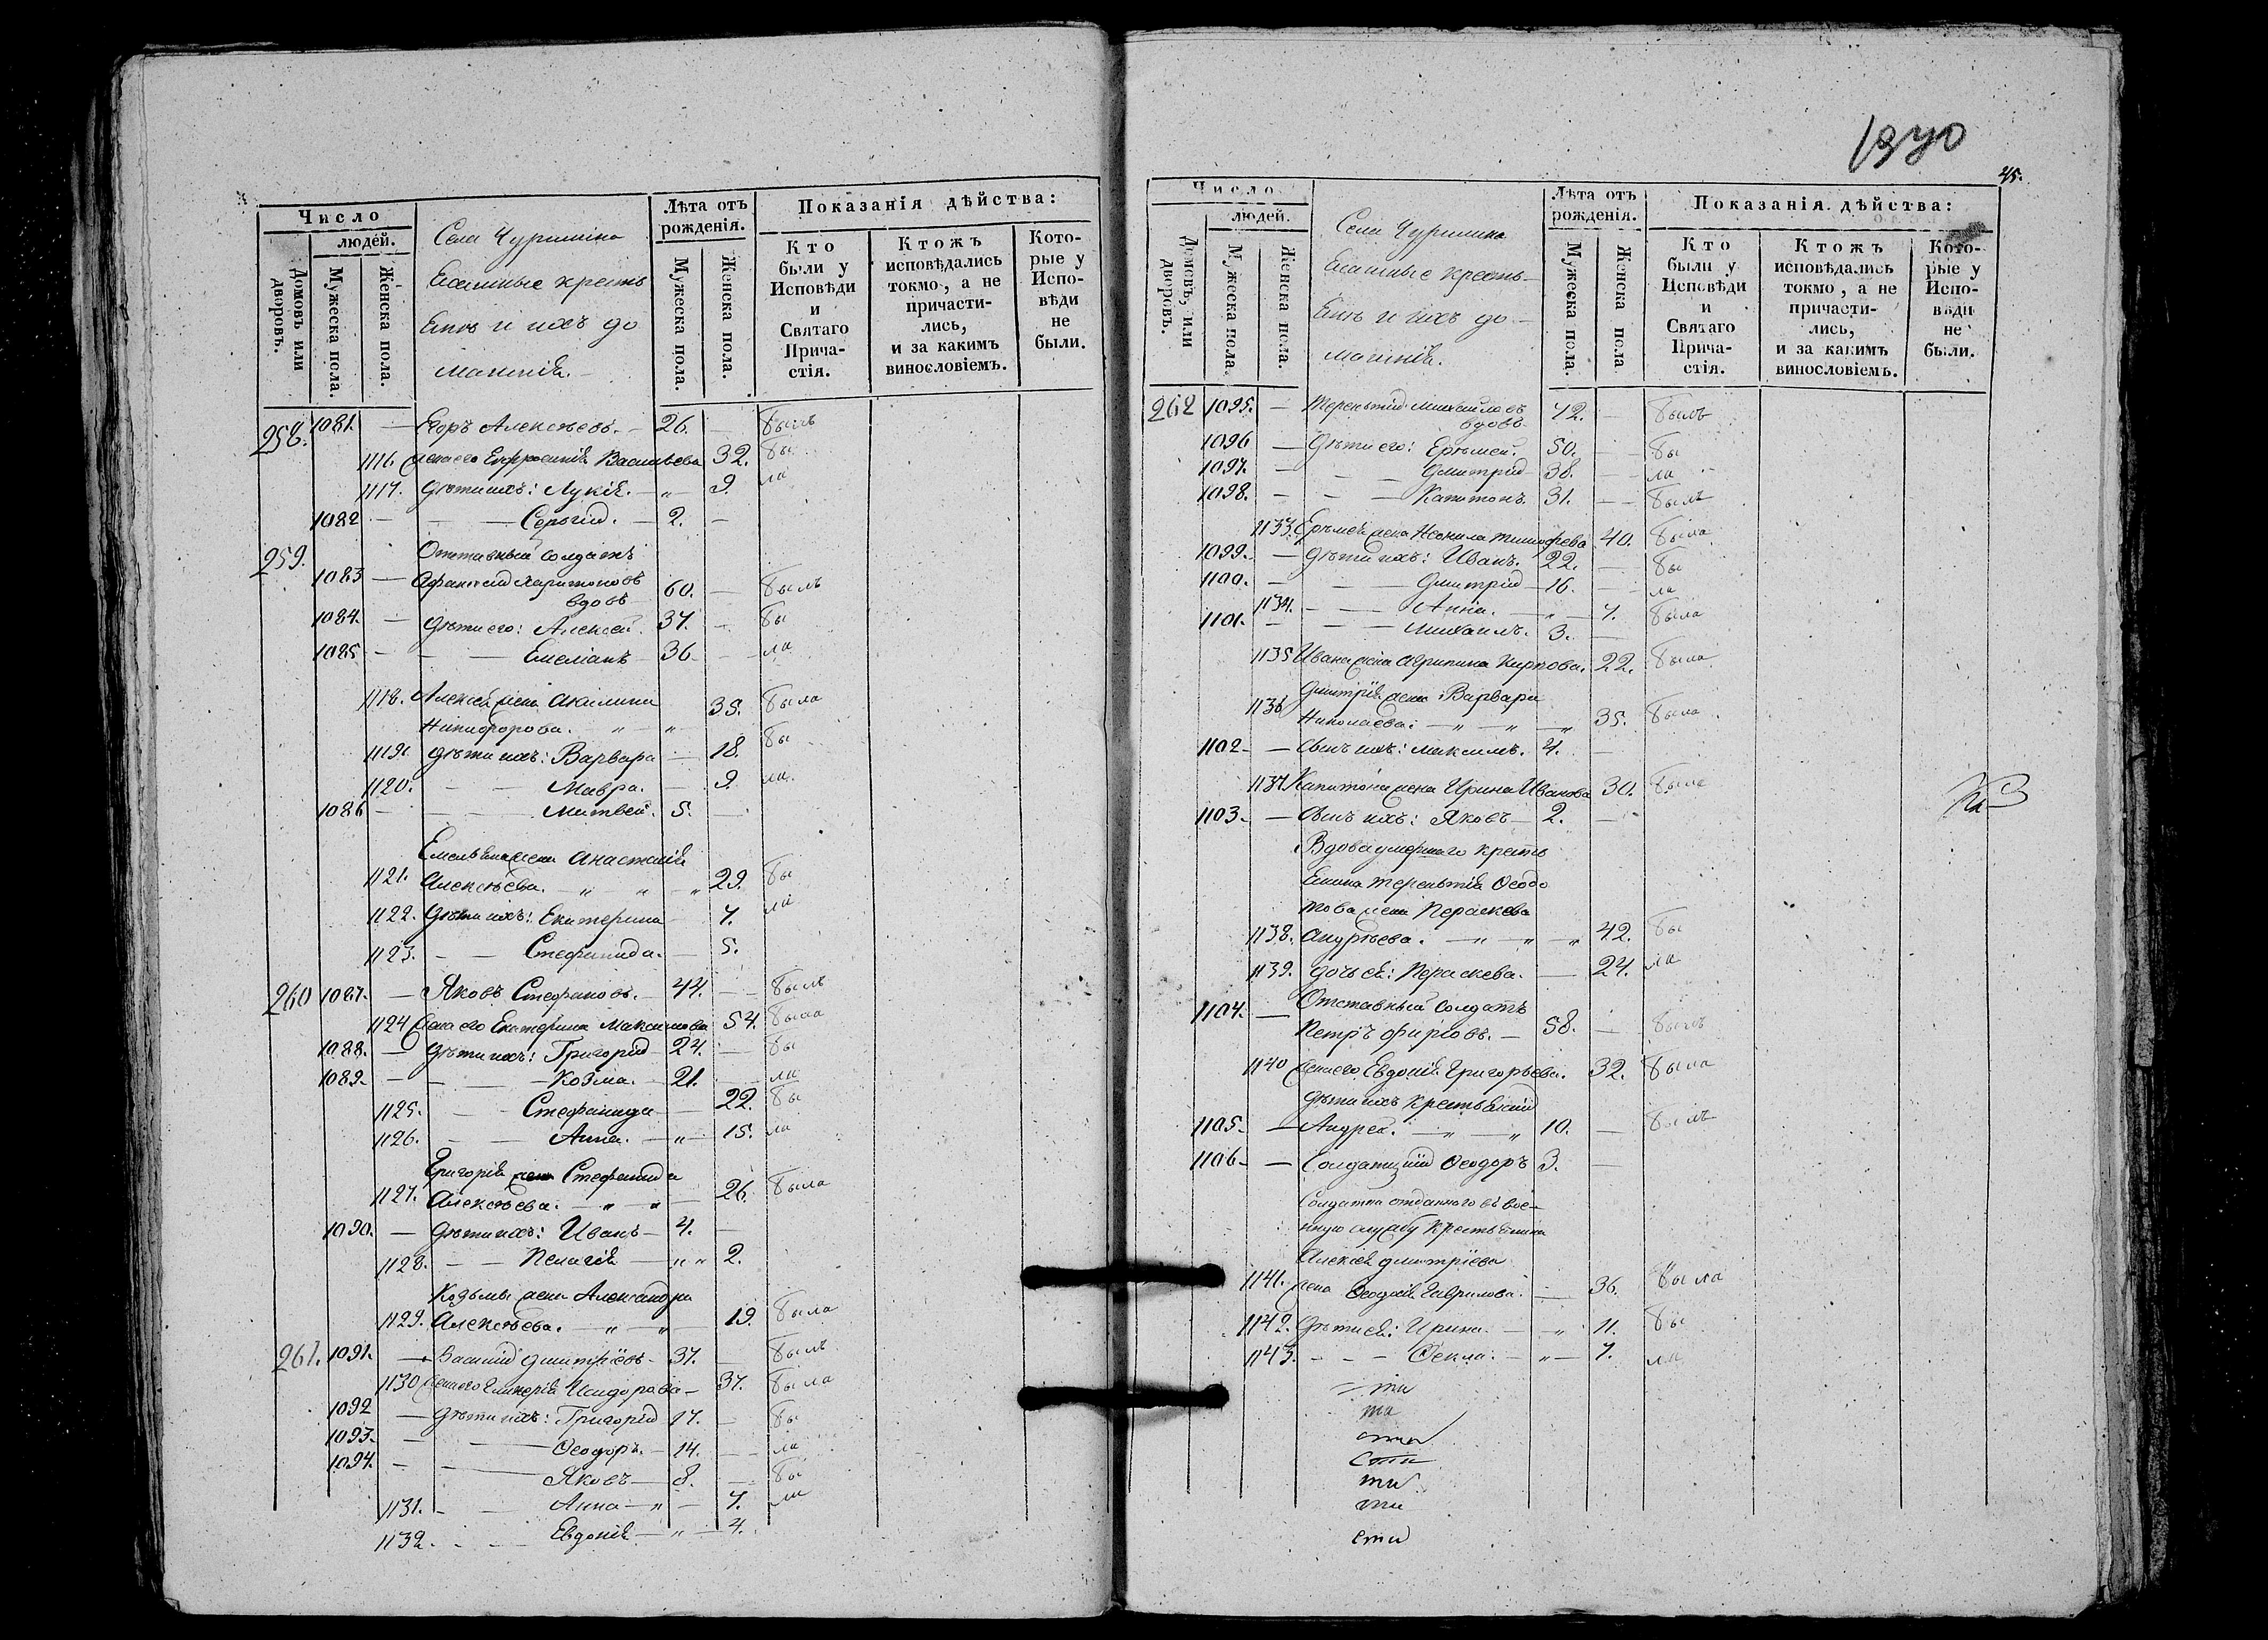 Число
людей.
Домовъ или дворовъ.
Мужеска пола.
Женска пола.
Села Чуримина
Ясашные кресть
яне и ихъ до
машнія.
Лѣта отъ рожденія.
Мужеска пола.
Женска пола.
Показанія дѣйства:
Кто были у Исповѣди и Святаго Прича-стія.
Ктожъ исповѣдались токмо, а не причасти-лись, и за какимъ винословіемъ.
Кото-рые у Испо-вѣди не были.
258. 1081. — Егоръ Алексѣевъ. — 26. — былъ
1116. Жена его Евфросинія Васильева 32. бы
1117. Дѣти ихъ: Лукія. — „ — 9. ла
1082 — — Сергій. — 2. —
259. Отставный солдатъ
1083 — Афанасій Харитоновъ
вдовъ 60. — былъ
1084. — Дѣти его: Алексей. 37. — бы
1085 — — Емеліанъ — 36 — ла
1118. Алексея жена Акилина
Никифорова. — „ — „ 35. была
1119. Дѣти ихъ: Варвара — 18. бы
1120. — — Мавра. — 9. ла
1086 — — Матвей. 5. —
Емельяна жена Анастасія
1121. Алексѣева. — „ „ — „ 29. бы
1122. Дѣти ихъ: Екатерина 7. ла
1123. — — Стефанида. — 5.
260 1087. — Яковъ Стефановъ. — 44. — былъ
1124 Жена его Екатерина Максимова 54. была
1088. — Дѣти ихъ: Григорій 24. — бы
1089. — — Козма. — 21. — ла
1125. — — Стефанида — 22. бы
1126. — — Анна. — „ — 15. ла
Григорія жена Стефанида
1127. Алексѣева. — „ — „ — 26. была
1090. — Дѣти ихъ: Иванъ — 4. —
1128. — — Пелагія — „ „ 2.
Козьмы жена Александра
1129. Алексѣева. — „ — „ — 19. была
261. 1091. — Василій Дмитріевъ — 37. — былъ
1130 Жена его Гликерія Исидорова — 37. была
1092 — Дѣти ихъ: Григорій 17. — бы
1093. — — Ѳеодоръ. — 14. — ла
1094. — — Яковъ — 8. — бы
1131. — — Анна — „ — 7. ла
1132. — — Евдокія — „ — 4.
1970
45.
Число
людей.
Домовъ, или дворовъ.
Мужеска пола.
Женска пола.
Села Чуримина
Ясашные кресть-
яне и ихъ до-
машнія.
Лѣта отъ рожденія.
Мужеска пола.
Женска пола
Показанія дѣйства:
Кто были у Исповѣди и Святаго Прича-стія.
Ктожъ исповѣдались токмо, а не причасти-лись, и за какимъ винословіемъ.
Кото-рые у Испо-вѣди не были.
262 1095. — Терентій Михайловъ
вдовъ 72. — былъ
1096 — Дѣти его: Еремей. 50. — бы
1097. — — Дмитрій 38. — ла
1098. — — Капитонъ. 31. — былъ
1133. Еремея жена Неонила Тимофеева 40. была
1099. — Дѣти ихъ: Иванъ. 22. — бы
1100. — — Дмитрій — 16. — ла
1134. — — Анна. — „ — 7. была
1101. — — Михаилъ. 3. —
1135 Ивана жена Агрипина Карпова. 22. была
Дмитрія жена Варвара
1136 Николаева: — „ — „ — „ 35. была
1102 — — Сынъ ихъ: Максимъ. 4. —
1137 Капитона жена Ирина Иванова 30. была
1103 — — Сынъ ихъ: Яковъ — 2. —
Вдова умершаго кресть
янина Терентія Ѳеодо
това жена Параскева
1138. Андрѣева. — „ — „ — „ 42. бы
1139. дочь ея: Параскева. — 24. ла
1104. — Отставный солдатъ
Петръ Фирсовъ. — 58. — былъ
1140 Жена его Евдокія Григорьева. 32. была
Дѣти ихъ крестьянскій
1105 — — Андрей. — „ — „ 10. — былъ
1106 — — Солдатскій Ѳеодоръ 3. —
Солдатка отданнаго въ вое-
нную службу крестьянина
Алексея Дмитріева
1141. жена Ѳеодосія Гаврилова. — 36. была
1142. Дѣти ея: Ирина. — „ 11. бы
1143. — — Ѳекла. — „ — 7. ла
ти
та
сти
ти
ти
сти